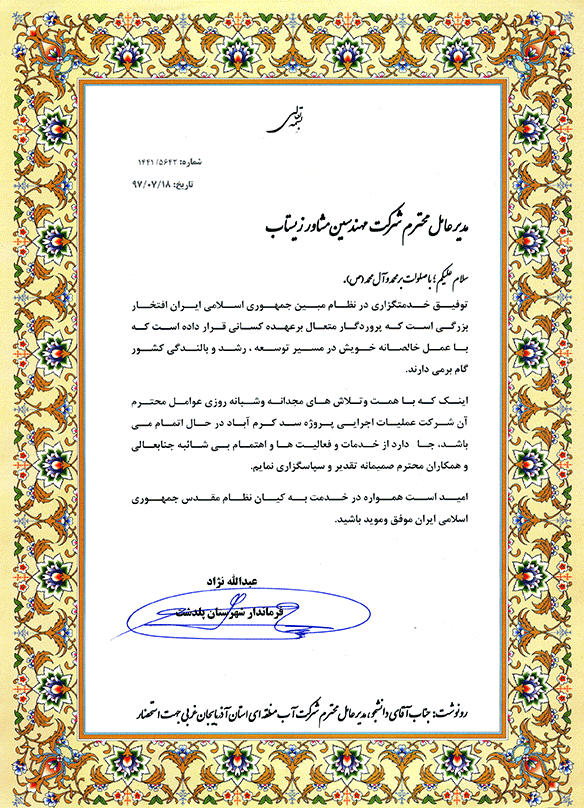 بسمه تعالی
شماره: ۱۴۴۱/۵۶۴۲
تاریخ: ۹۷/۰۷/۱۸
مدیر عامل محترم شرکت مهندسین مشاور زیستاب
سلام علیکم ؛ با صلوات بر محمد و آل محمد (ص)،
توفیق خدمتگزاری در نظام مبین جمهوری اسلامی ایران افتخار
بزرگی است که پروردگار متعال برعهده کسانی قرار داده است که
با عمل خالصانه خویش در مسیر توسعه ، رشد و بالندگی کشور
گام برمی دارند.
اینک که با همت وتلاش های مجدانه وشبانه روزی عوامل محترم
آن شرکت عملیات اجرایی پروژه سد کرم آباد در حال اتمام می
باشد، جا دارد از خدمات و فعالیت ها و اهتمام بی شائبه جنابعالی
و همکاران محترم صمیمانه تقدیر و سپاسگزاری نمایم.
امید است همواره در خدمت به کیان نظام مقدس جمهوری
اسلامی ایران موفق وموید باشید.
عبدالله نژاد
فرماندار شهرستان پلدشت
رونوشت: جناب آقای دانشجو، مدیر عامل محترم شرکت آب منطقه ای استان آذربایجان غربی جهت استحضار